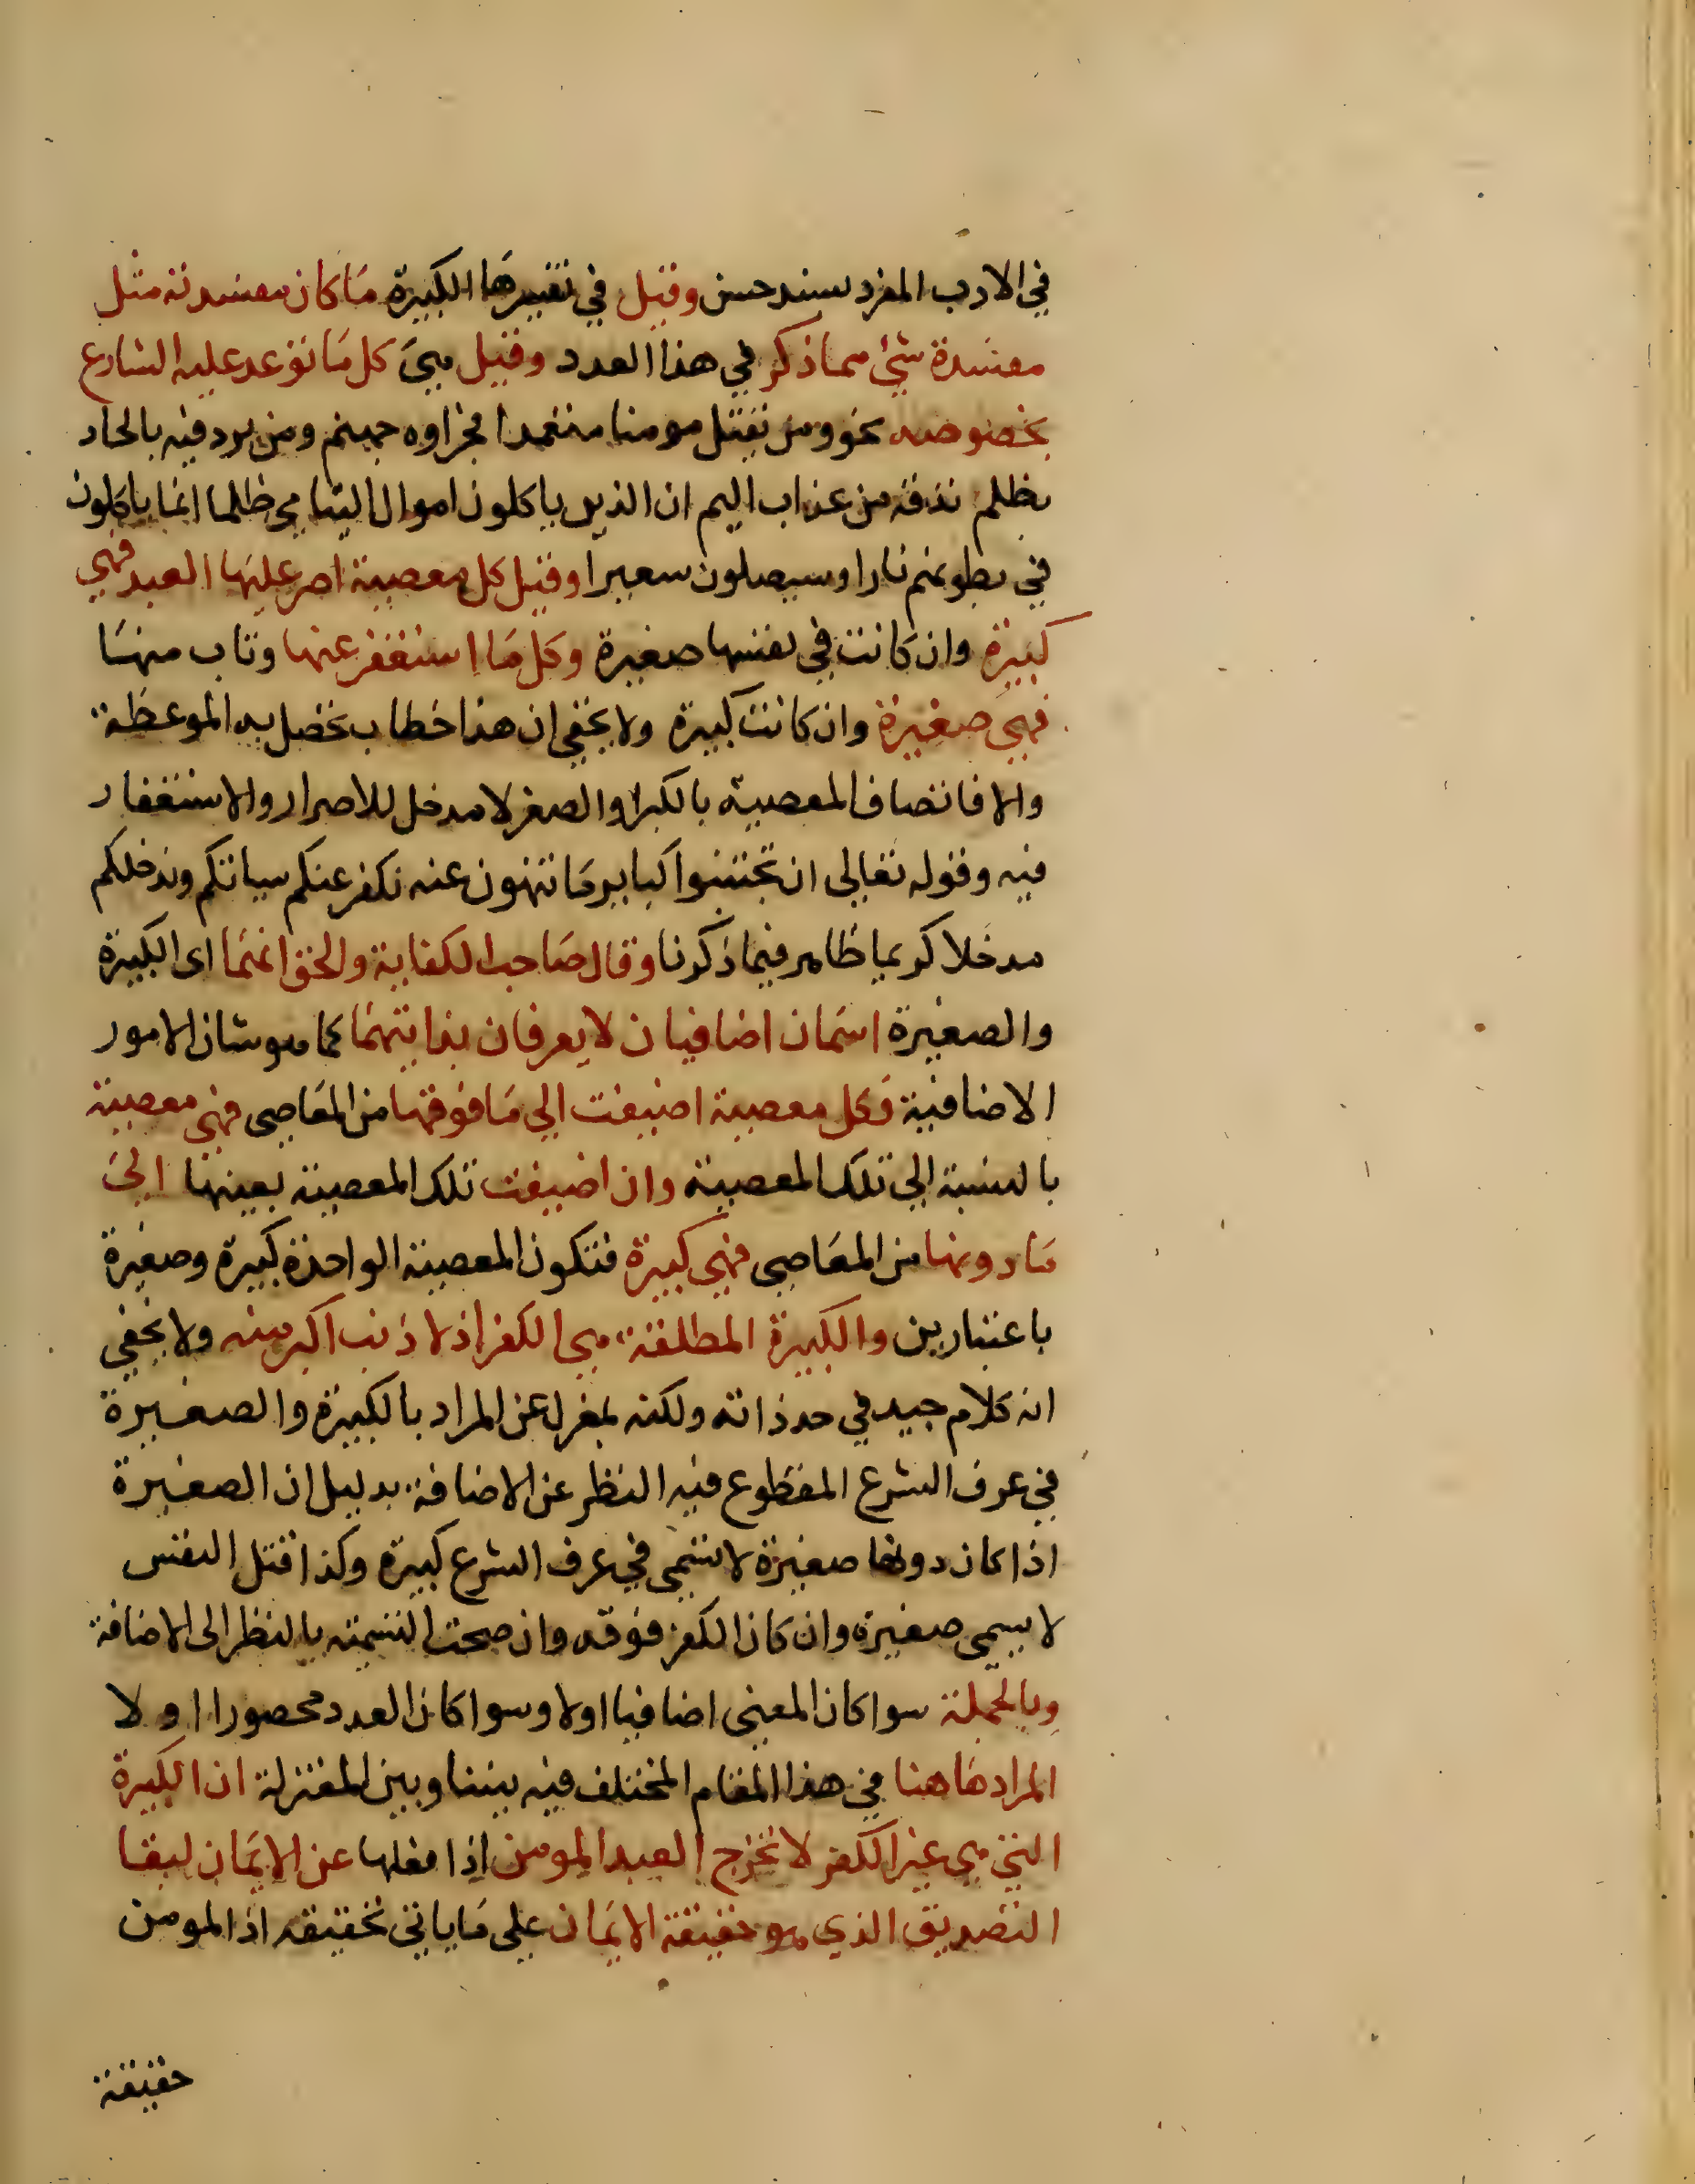 في الادب المفرد بسند حسن وقيل في تفسيرها الكبيرة ما كان مفسدته مثل
مفسدة شئ مما ذكر في هذا العدد وقيل هي كل ما توعد عليه الشارع
بخصوصه نحو ومن يقتل مومنا متعمدا فجزاوه جهنم ومن يرد فيه بالحاد
بظلم نذقه من عذاب اليم ان الذين ياكلون اموال اليتامي ظلما انما ياكلون
في بطونهم نارا وسيصلون سعيرا وقيل كل معصية اصر عليها العبد فهي
كبيرة وان كانت في نفسها صغيرة وكل ما استغفر عنها وتاب منها
فهي صغيرة وان كانت كبيرة ولا يخفي ان هذا خطاب تحصل به الموعظة
والا فاتصاف المعصية بالكبر والصغر لا مدخل للاصرار والاستغفار
فيه وقوله تعالي ان تجتنبوا كباير ما تنهون عنه نكفر عنكم سياتكم وندخلكم
مدخلا كريما ظاهر فيما ذكرنا وقال صاحب الكفاية والحق انهما اى الكبيرة
والصغيرة اسمان اضافيان لا يعرفان بذاتيهما كما هو شان الامور
الاضافية فكل معصية اضيفت الي ما فوقها من المعاصي فهي معصية
بالنسبة الي تلك المعصية وان اضيفت تلك المعصية بعينها الي
ما دونها من المعاصي فهي كبيرة فتكون المعصية الواحدة كبيرة وصغيرة
باعتبارين والكبيرة المطلقة هي الكفر اذ لا ذنب اكبر منه ولا يخفي
انه كلام جيد في حد ذاته ولكنه بمعزل عن المراد بالكبيرة والصغيرة
في عرف الشرع المقطوع فيه النظر عن الاضافة بدليل ان الصغيرة
اذا كان دونها صغيرة لا تسمي في عرف الشرع كبيرة وكذا قتل النفس
لا يسمي صغيرة وان كان الكفر فوقه وان صحت التسمية بالنظر الى الاضافة
وبالجملة سوا كان المعني اضافيا اولا وسوا كان العدد محصورا او لا
المراد هاهنا في هذا المقام المختلف فيه بيننا وبين المعتزلة ان الكبيرة
التي هي غير الكفر لا تخرج العبد المومن اذا فعلها عن الايمان لبقا
التصديق الذي هو حقيقة الايمان علي ما ياتي تحقيقه اذ المومن
حقيقة